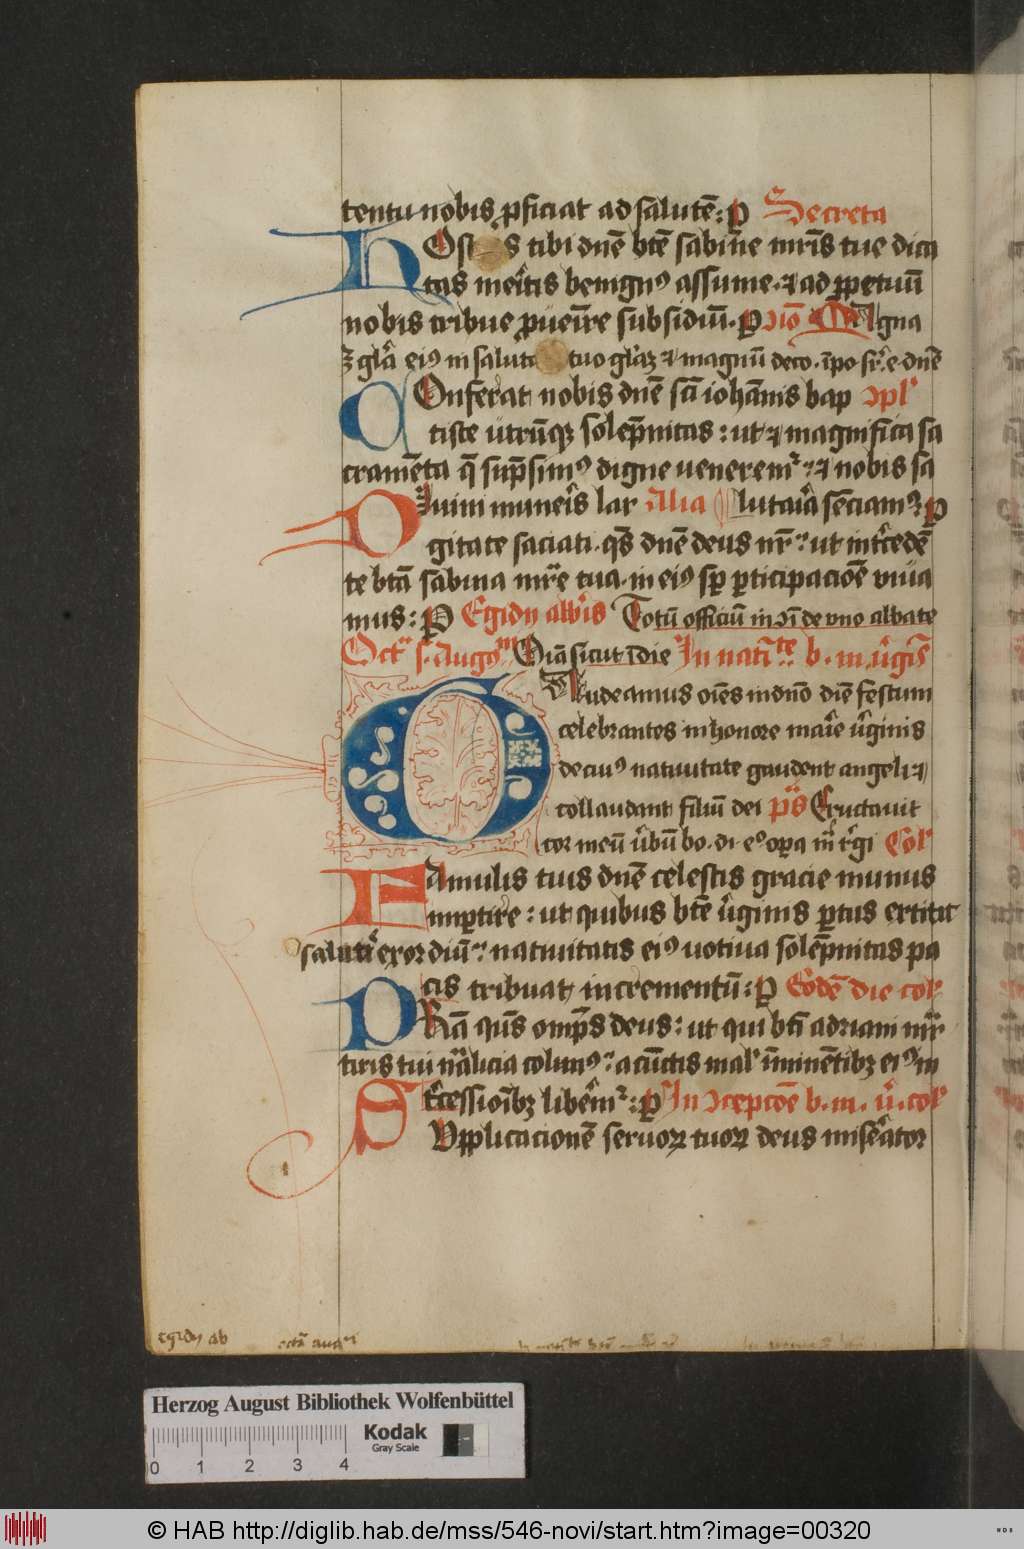 tentu nobis ꝓficiat ad salutē: ꝑ Secreta
HOstias tibi dnē btē sabine mr̄is tue dica
tas meritis benignꝰ assume · ⁊ ad ꝑpetuū
nobis tribue ꝓuenire subsidiū. ꝑ Magna
Ꝫ glā eiꝰ in salutari tuo glāꝫ ⁊ magnū deco. īpo sr̄ e dnē
COnferat nobis dnē scī iohānis bap ꝯpl
tiste utrūqꝫ solēpnitas: ut ⁊ magnifica sa
cramēta q̄ sūpsimꝰ digne ueneremr: ⁊ nobis sa
DIuini muneris lar Alia lutaria senciamꝰ ꝑ
gitate saciati. qs̄ dnē deus nr̄: ut intercedē
te btā sabina mr̄e tua. in eiꝰ sp̄ ꝑticipacioē viua
mus: ꝑ Egidij abbis Totū officiū in ꝯi de vno abbate
Oct s. Augꝰ Oia sicut ī die In natitē b. m. v̄gis
GAudeamus oīes in dnō diē festum
celebrantes in honore marie v̄ginis
de cuiꝰ natiuitate gaudent angeli ⁊
collaudant filiū dei ps Eructauit
cor meū v̄bū bo. di. eº opera m̄ r̄gi Col
FAmulis tuis dnē celestis gracie munus
imꝑtire: ut quibus btē v̄ginis ꝑtus extitit
salutis exordiū: natiuitatis eiꝰ uotiua solēpnitas pa
cis tribuat incrementū: ꝑ Eodē die col
PRā qs̄ omps̄ deus: ut qui bti adriani mr̄
tiris tui natalicia colimꝰ: a cūctis mal īminētibꝫ eiꝰ in
t̄cessioībꝫ liberemr: ꝑ In ꝯcepcōe b. m. v̄. col
SUpplicacionē seruoꝝ tuoꝝ deus miserator
egidij ab
octā augꝰ
Herzog August Bibliothek Wolfenbüttel
Kodak
Gray Scale
0 1 2 3 4
© HAB http://diglib.hab.de/mss/546-novi/start.htm?image=00320